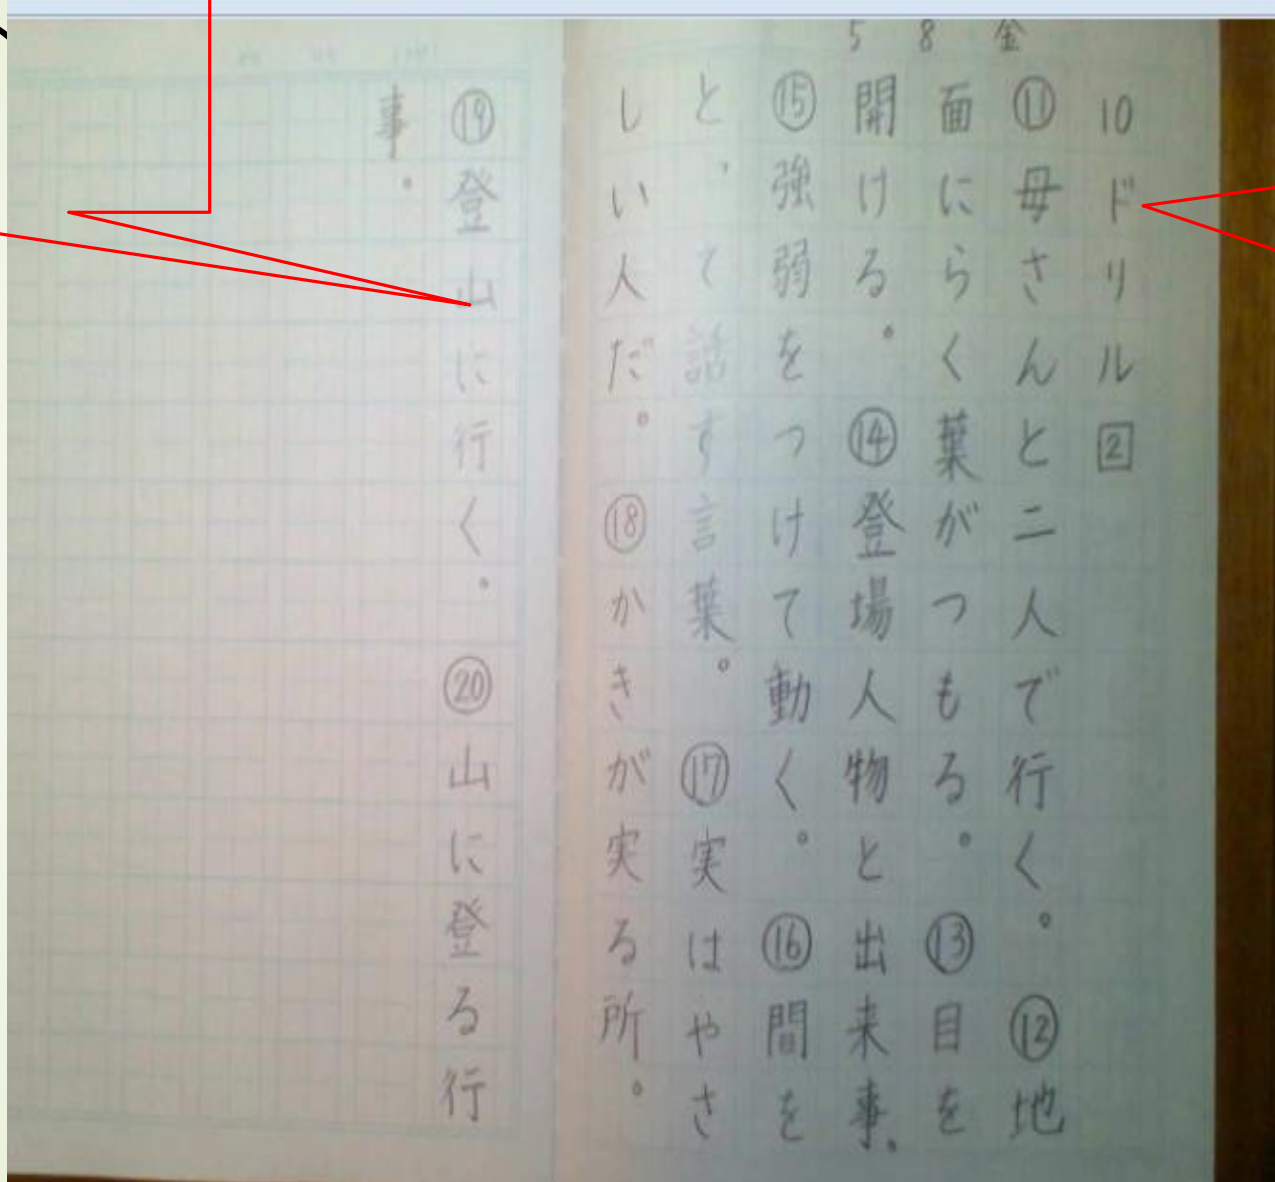 5 8 金
10ドリル2
⑪母さんと二人で行く。⑫地
面にらく葉がつもる。⑬目を
開ける。⑭登場人物と出来事。
⑮強弱をつけて動く。⑯間を
とって話す言葉。⑰実はやさ
しい人だ。⑱かきが実る所。
⑲登山に行く。⑳山に登る行
事。